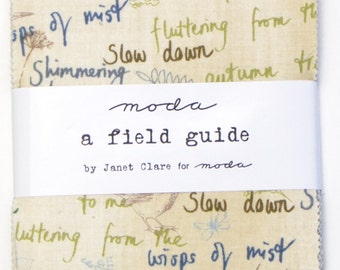 fluttering from the
wisps of mist
Slow down
Shimmering
autumn
moda
a field guide
by Janet Clare for moda
to me
Slow down
fluttering from the
wisps of mist